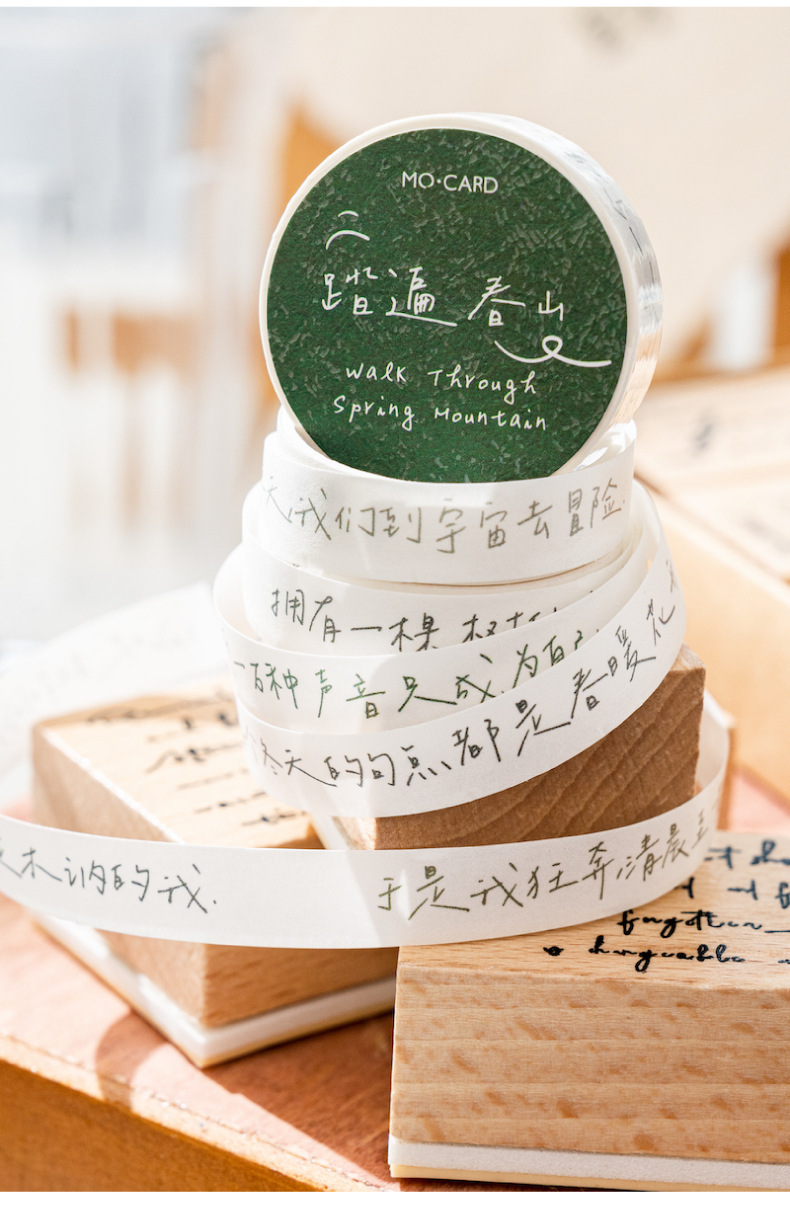 MO·CARD
踏遍春山
Walk Through
Spring Mountain
天,我们到宇宙去冒险.
拥有一棵
一百种声音只成为自己
冬天的句点都是春暖花
木讷的我.
于是我狂奔,清晨
forgotten